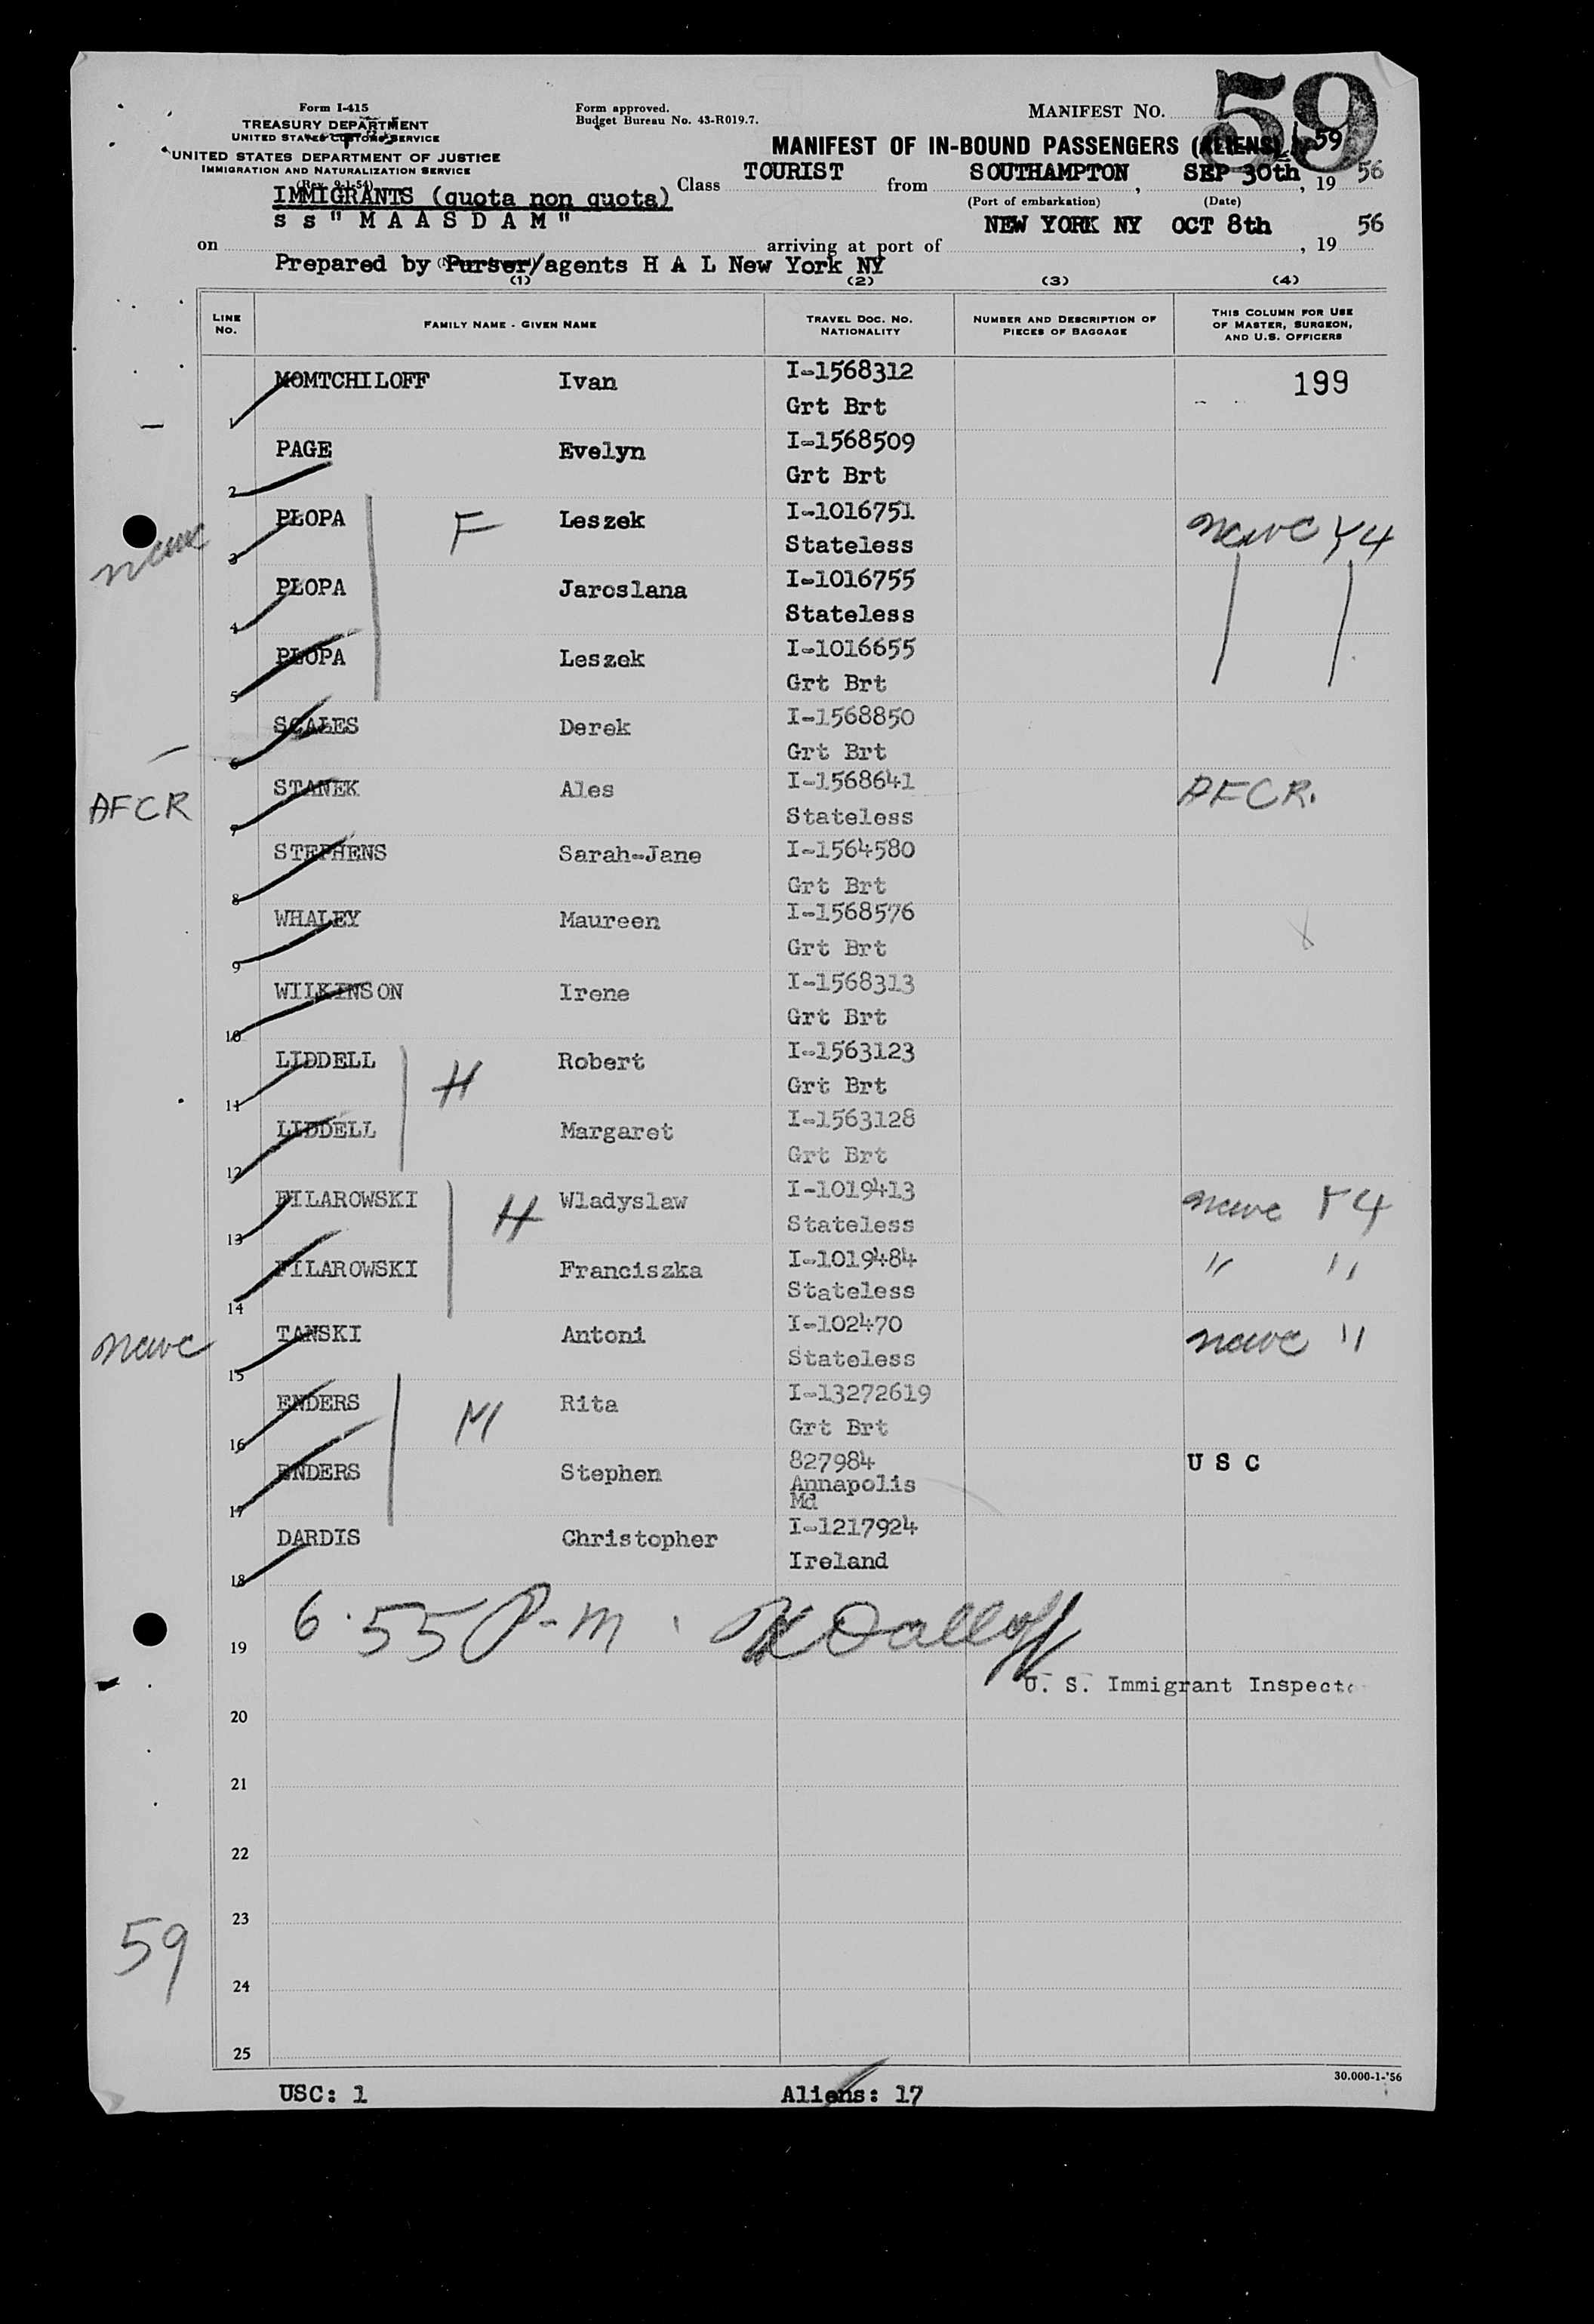 Form I-415
TREASURY DEPARTMENT
UNITED STATES CUSTOMS SERVICE
UNITED STATES DEPARTMENT OF JUSTICE
IMMIGRATION AND NATURALIZATION SERVICE
(Rev. 9-1-54)
Form approved.
Budget Bureau No. 43-R019.7.
MANIFEST NO. 59
MANIFEST OF IN-BOUND PASSENGERS (ALIENS) 59
IMMIGRANTS (quota non quota) Class TOURIST from SOUTHAMPTON, SEP 30th, 19 56
(Port of embarkation) (Date)
on s s "M A A S D A M" arriving at port of NEW YORK NY OCT 8th, 19 56
Prepared by Purser/agents H A L New York NY
(1) (2) (3) (4)
LINE NO. FAMILY NAME - GIVEN NAME TRAVEL DOC. NO. NATIONALITY NUMBER AND DESCRIPTION OF PIECES OF BAGGAGE THIS COLUMN FOR USE OF MASTER, SURGEON, AND U.S. OFFICERS
1 MOMTCHILOFF Ivan I-1568312 199
Grt Brt
2 PAGE Evelyn I-1568509
Grt Brt
3 PLOPA F Leszek I-1016751
Stateless
4 PLOPA Jaroslana I-1016755
Stateless
5 PLOPA Leszek I-1016655
Grt Brt
6 SCALES Derek I-1568850
Grt Brt
AFCR 7 STANEK Ales I-1568641 AFCR.
Stateless
8 STEPHENS Sarah-Jane I-1564580
Grt Brt
9 WHALEY Maureen I-1568576
Grt Brt
10 WILKINSON Irene I-1568313
Grt Brt
11 LIDDELL H Robert I-1563123
Grt Brt
12 LIDDELL Margaret I-1563128
Grt Brt
13 FILAROWSKI H Wladyslaw I-1019413
Stateless
14 FILAROWSKI Franciszka I-1019484 " "
Stateless
15 TANSKI Antoni I-102470
Stateless
16 ENDERS M Rita I-13272619
Grt Brt
17 ENDERS Stephen 827984 U S C
Annapolis
Md
18 DARDIS Christopher I-1217924
Ireland
6.55 P-m.
19
U. S. Immigrant Inspecto
20
21
22
23
59
24
25
30.000-1-'56
USC: 1 Aliens: 17